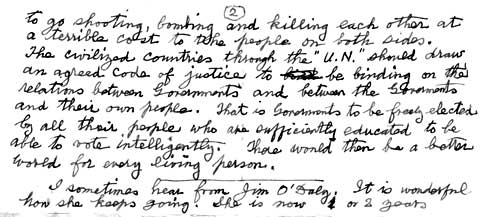 (2)
to go shooting, bombing and killing each other at
a terrible cost to the people on both sides.
The civilized countries through the "U.N." should draw
an agreed code of justice to be binding on the
relations between Governments and between the Governments
and their own people. That is Governments to be freely elected
by all their people who are sufficiently educated to be
able to vote intelligently. There would then be a better
world for every living person.
I sometimes hear from Jim O'Daly. It is wonderful
how she keeps going. She is now 1 or 2 years